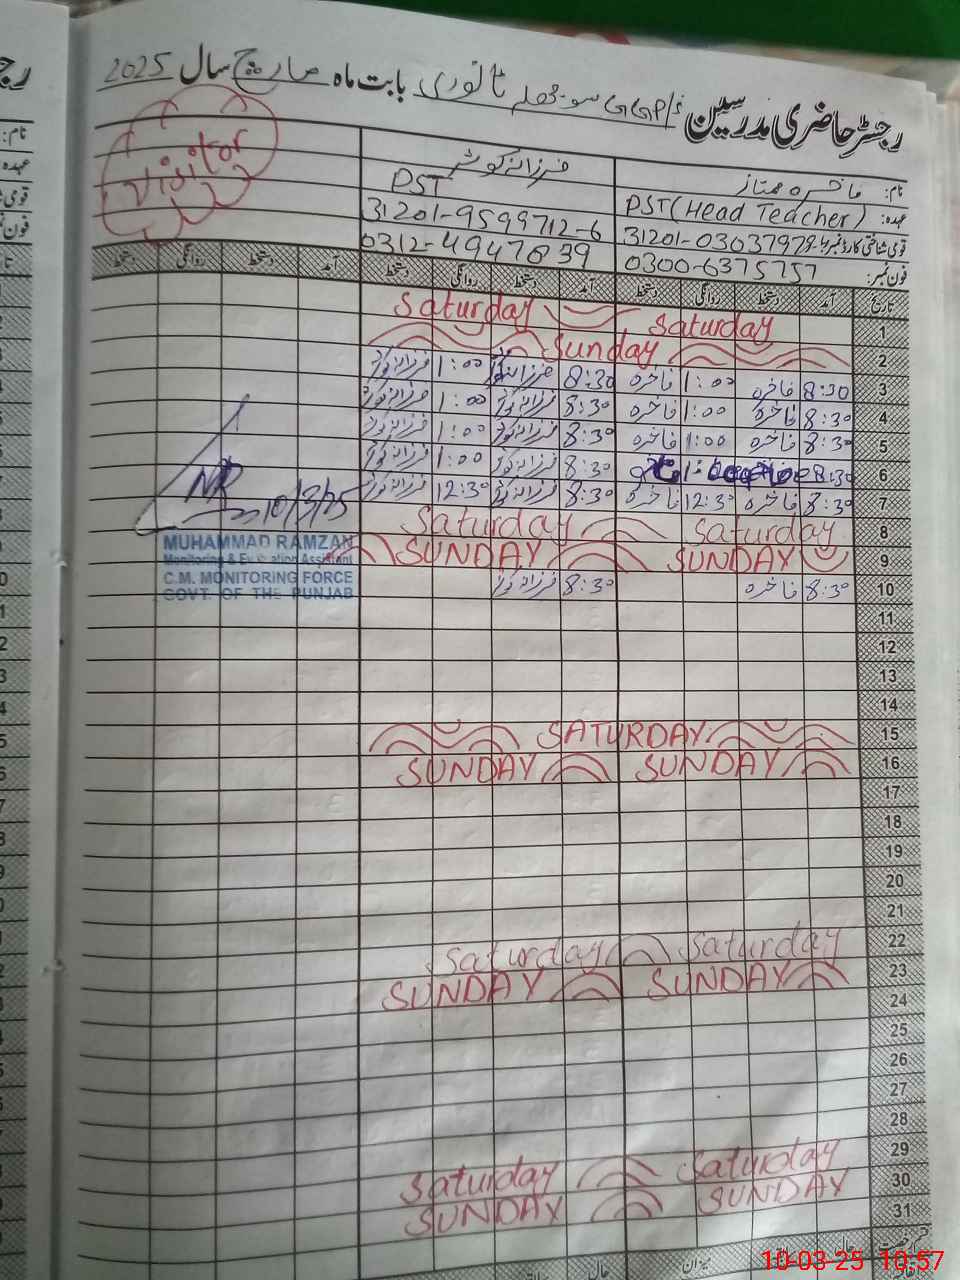 رجسٹر حاضری مدرسین بابت ماہ مارچ سال 2025
نام: فاخرہ ممتاز
فرزانہ کوثر
Visitor
عہدہ: PST (Head Teacher)
PST
قومی شناختی کارڈ نمبر
31201-9599712-6
فون نمبر: 0300-6375757
0312-4947839
تاریخ آمد دستخط روانگی دستخط آمد دستخط روانگی دستخط آمد دستخط روانگی دستخط
1 Saturday Saturday
2 Sunday
3 8:30 فاخرہ 1:00 فاخرہ 8:30 فرزانہ کوثر 1:00 فرزانہ کوثر
4 8:30 فاخرہ 1:00 فاخرہ 8:30 فرزانہ کوثر 1:00 فرزانہ کوثر
5 8:30 فاخرہ 1:00 فاخرہ 8:30 فرزانہ کوثر 1:00 فرزانہ کوثر
6 8:30 8:30 فرزانہ کوثر 1:00 فرزانہ کوثر
7 8:30 فاخرہ 12:30 فاخرہ 8:30 فرزانہ کوثر 12:30 فرزانہ کوثر
10/3/25
8 Saturday Saturday
9 SUNDAY SUNDAY
10 8:30 فاخرہ 8:30 فرزانہ کوثر
MUHAMMAD RAMZAN
Monitoring & Evaluation Assistant
C.M. MONITORING FORCE
GOVT. OF THE PUNJAB
11
12
13
14
15 SATURDAY
16 SUNDAY SUNDAY
17
18
19
20
21
22 Saturday Saturday
23 SUNDAY SUNDAY
24
25
26
27
28
29 Saturday Saturday
30 SUNDAY SUNDAY
31
میزان حال
10-03-25 10:57